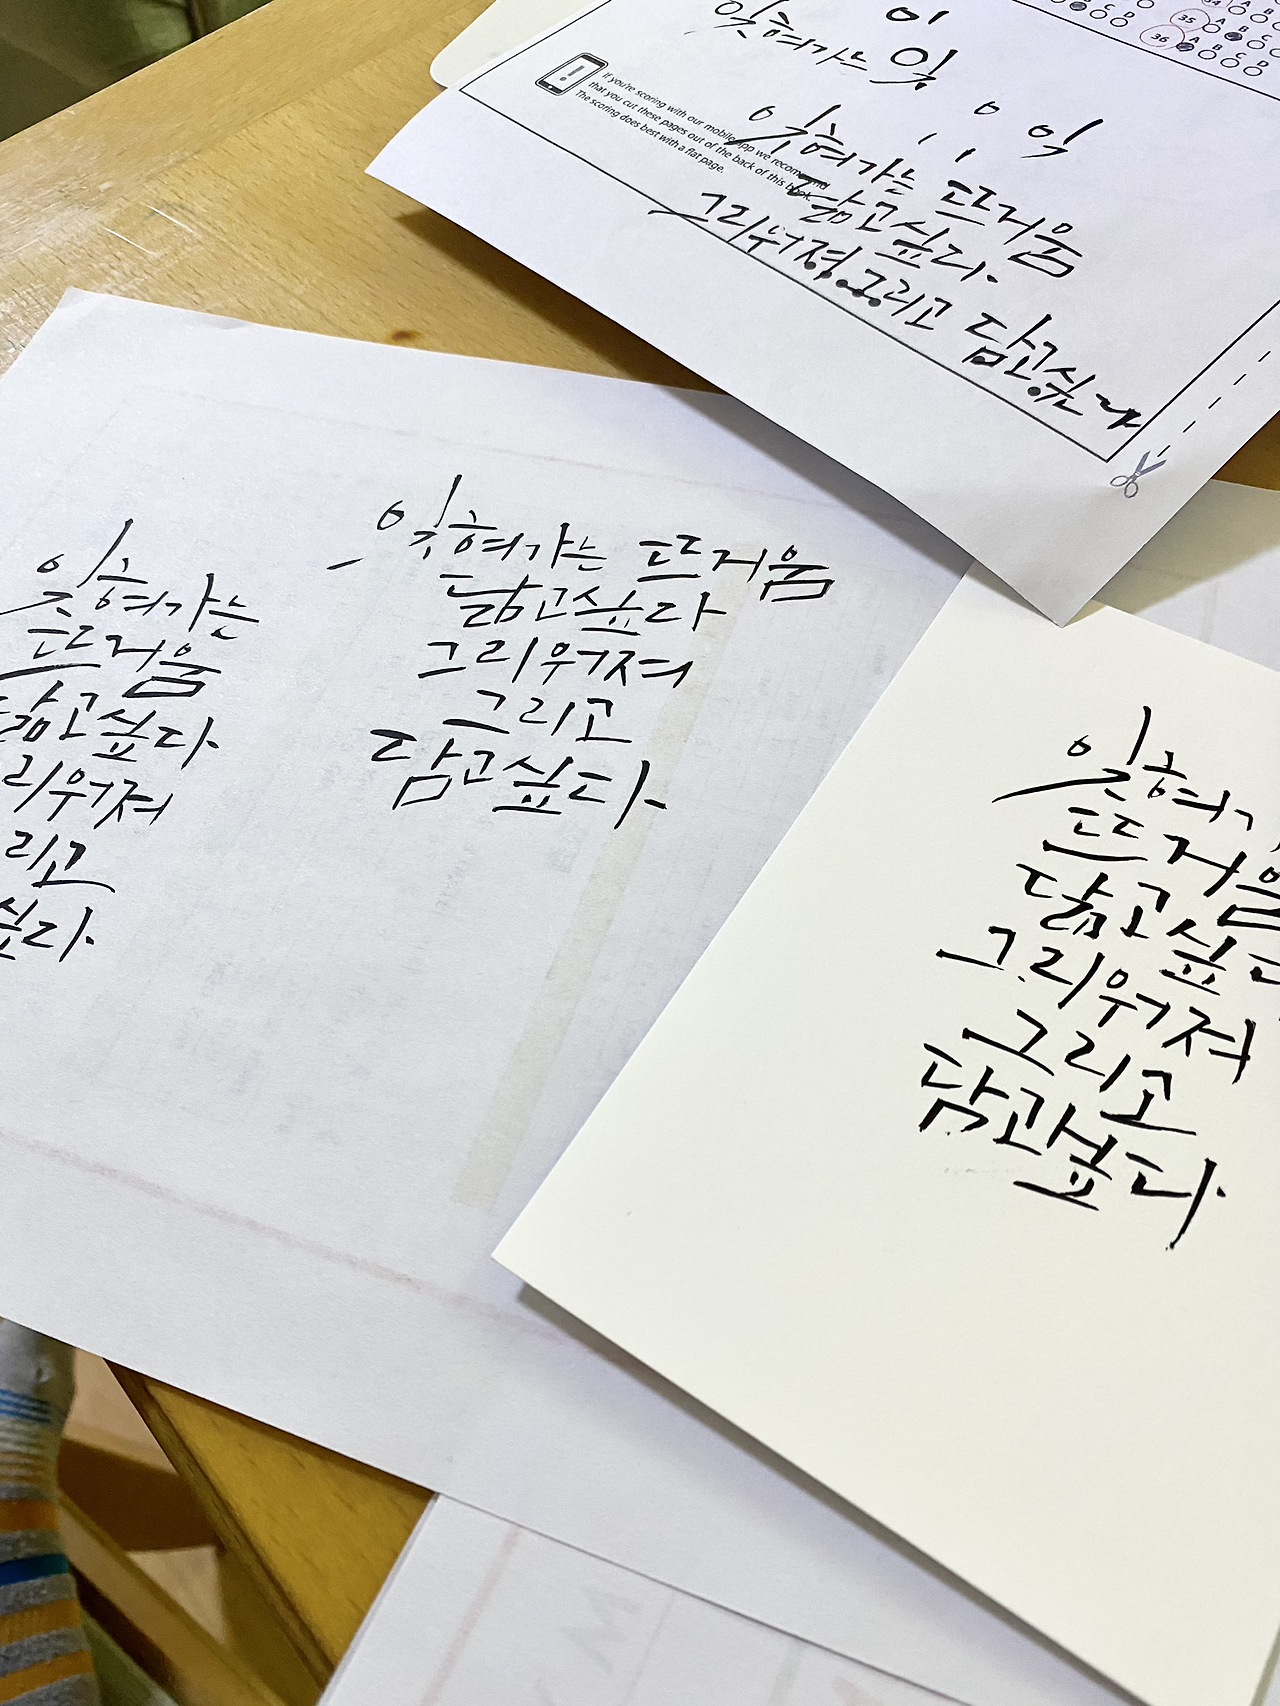 잊혀가는
이
잊
이
ㅇ
이
잊
35
A B C D
36
A B C D
If you're scoring with our mobile app we recommend
that you cut these pages out of the back of this book.
The scoring does best with a flat page.
잊혀가는 뜨거움
닮고싶다.
그리워져 그리고 담고싶다
잊혀가는
뜨거움
닮고싶다
리워져
리고
싶다.
잊혀가는 뜨거움
닮고싶다
그리워져
그리고
담고싶다.
잊혀가
뜨거움
닮고싶다
그리워져
그리고
담고싶다.